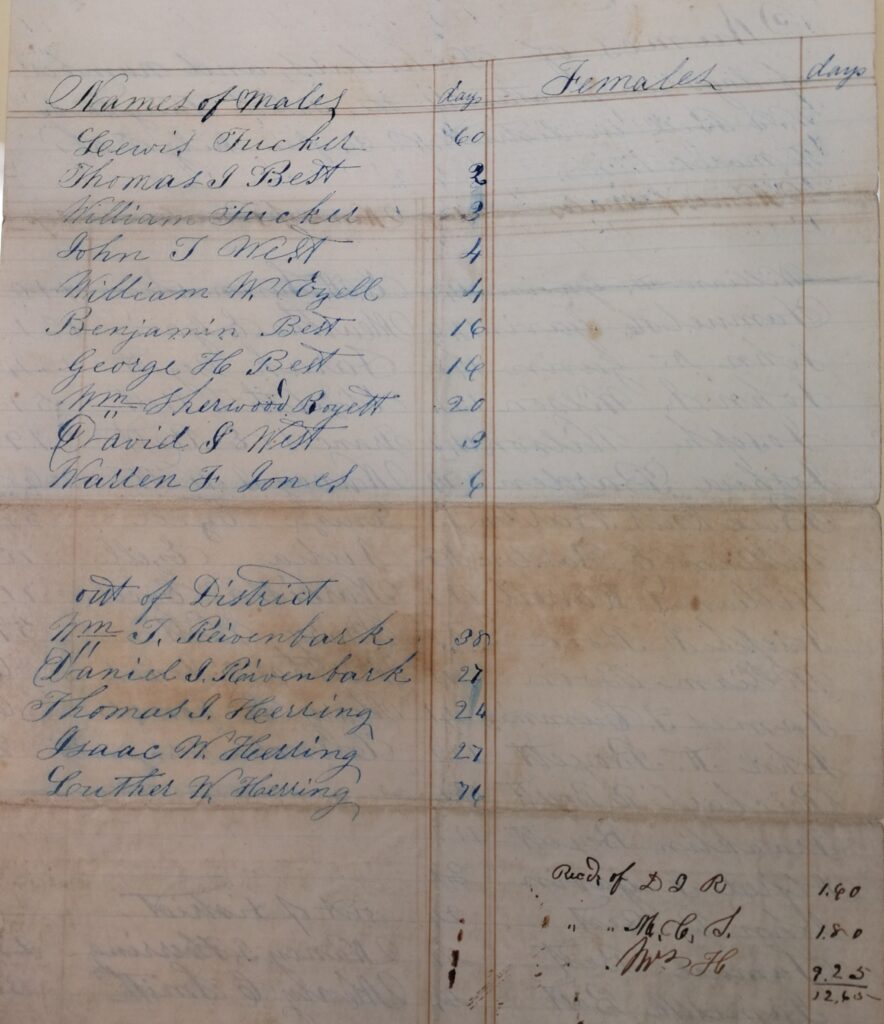 Names of Males days Females days
Lewis Tucker 60
Thomas J Best 2
William Tucker 3
John T West 4
William W. Ezell 4
Benjamin Best 16
George H Best 16
Wm Sherwood Boyett 20
David J West 3
Warren F Jones 6
out of District
Wm T. Reivenbark 38
Daniel J. Rivenbark 27
Thomas J. Herring 24
Isaac W. Herring 27
Luther W. Herring 76
Recd of D J R 1.60
" " M. C. S. 1.80
" " Mrs H 9.25
12.65